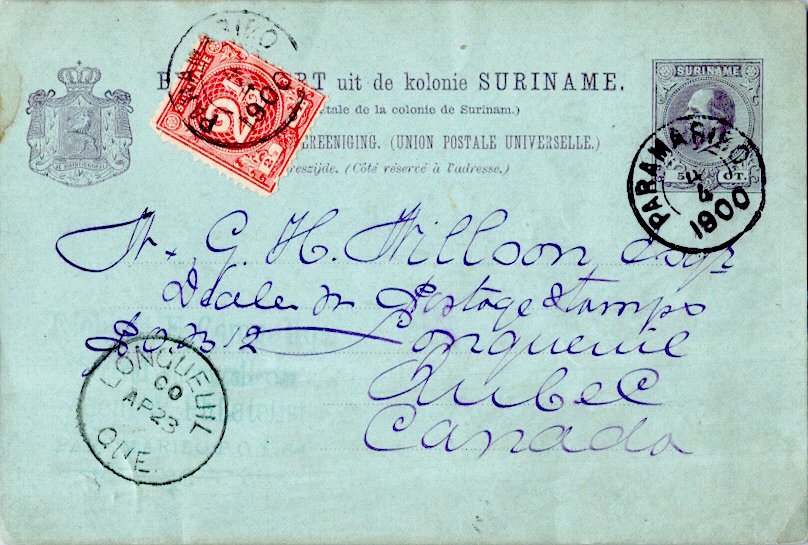 SURINAME
BR RT uit de kolonie SURINAME.
tale de la colonie de Surinam.)
EREENIGING. (UNION POSTALE UNIVERSELLE.)
reszijde. (Côté réservé à l'adresse.)
5 CT.
2½
PARAMARIBO
1900
PARAMARIBO
4
1900
G. H. Willson, Esqr
Dealer in Postage Stamps
P.O.B 12 Longueuil
Qubec
Canada
LONGUEUIL
00
AP 23
QUE